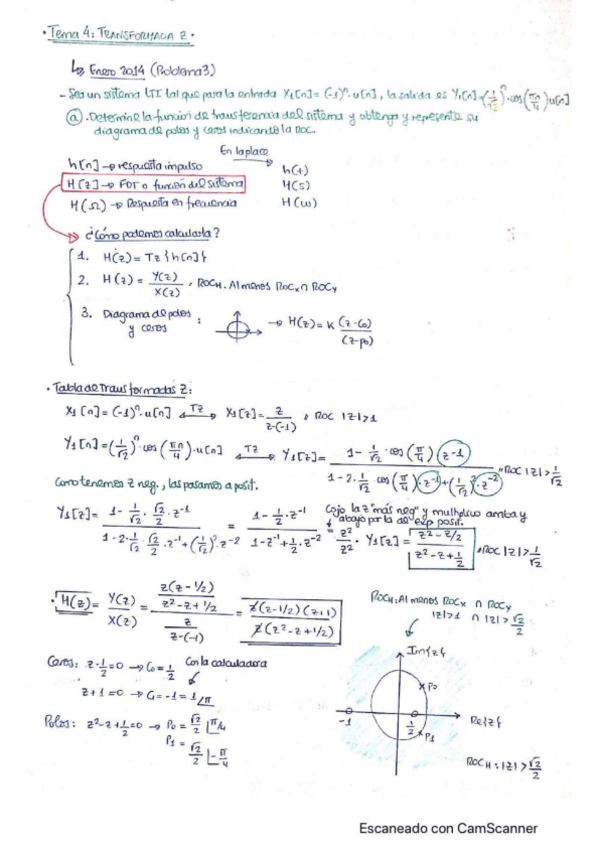 · Tema 4: TRANSFORMADA Z ·
↳ Enero 2014 (Problema 3)
- Sea un sistema LTI tal que para la entrada X1[n] = (-1)^n · u[n], la salida es Y1[n] = (1/√2)^n · cos(πn/4) u[n]
ⓐ. Determine la función de transferencia del sistema y obtenga y represente su
diagrama de polos y ceros indicando la ROC.
En laplace
h[n] → respuesta impulso h(t)
H[z] → FDT o función del sistema H(s)
H(Ω) → Respuesta en frecuencia H(ω)
¿Cómo podemos calcularla?
1. H(z) = Tz{h[n]}
2. H(z) = Y(z)/X(z), ROC_H. Al menos ROCx ∩ ROCy
3. Diagrama de polos y ceros : → H(z) = K (z-c0)/(z-p0)
· Tabla de Transformadas Z:
X1[n] = (-1)^n · u[n] ⟷TZ X1[z] = z/(z-(-1)), ROC |z|>1
Y1[n] = (1/√2)^n · cos(πn/4) · u[n] ⟷TZ Y1[z] = (1 - 1/√2 · cos(π/4) z^-1)/(1 - 2 · 1/√2 cos(π/4) · z^-1 + (1/√2)^2 · z^-2), ROC |z| > 1/√2
Como tenemos z neg., las pasamos a posit.
Cojo la z "más neg" y multiplico arriba y
abajo por la de exp posit.
Y1[z] = (1 - 1/√2 · √2/2 · z^-1)/(1 - 2 · 1/√2 · √2/2 · z^-1 + (1/√2)^2 · z^-2) = (1 - 1/2 · z^-1)/(1 - z^-1 + 1/2 z^-2) = z^2/z^2 · Y1[z] = (z^2 - z/2)/(z^2 - z + 1/2), ROC |z| > 1/√2
H(z) = Y(z)/X(z) = (z(z-1/2)/(z^2-z+1/2))/(z/(z-(-1))) = z(z-1/2)(z+1)/(z(z^2-z+1/2))
ROC_H: Al menos ROCx ∩ ROCy
|z|>1 ∩ |z| > √2/2
Ceros: z-1/2=0 → C0 = 1/2 Con la calculadora
z+1=0 → C1 = -1 = 1∠π
Polos: z^2-z+1/2=0 → P0 = √2/2 ∠π/4
P1 = √2/2 ∠-π/4
Im{z}
P0
-1 1/2 Re{z}
P1
ROC_H: |z| > √2/2
Escaneado con CamScanner